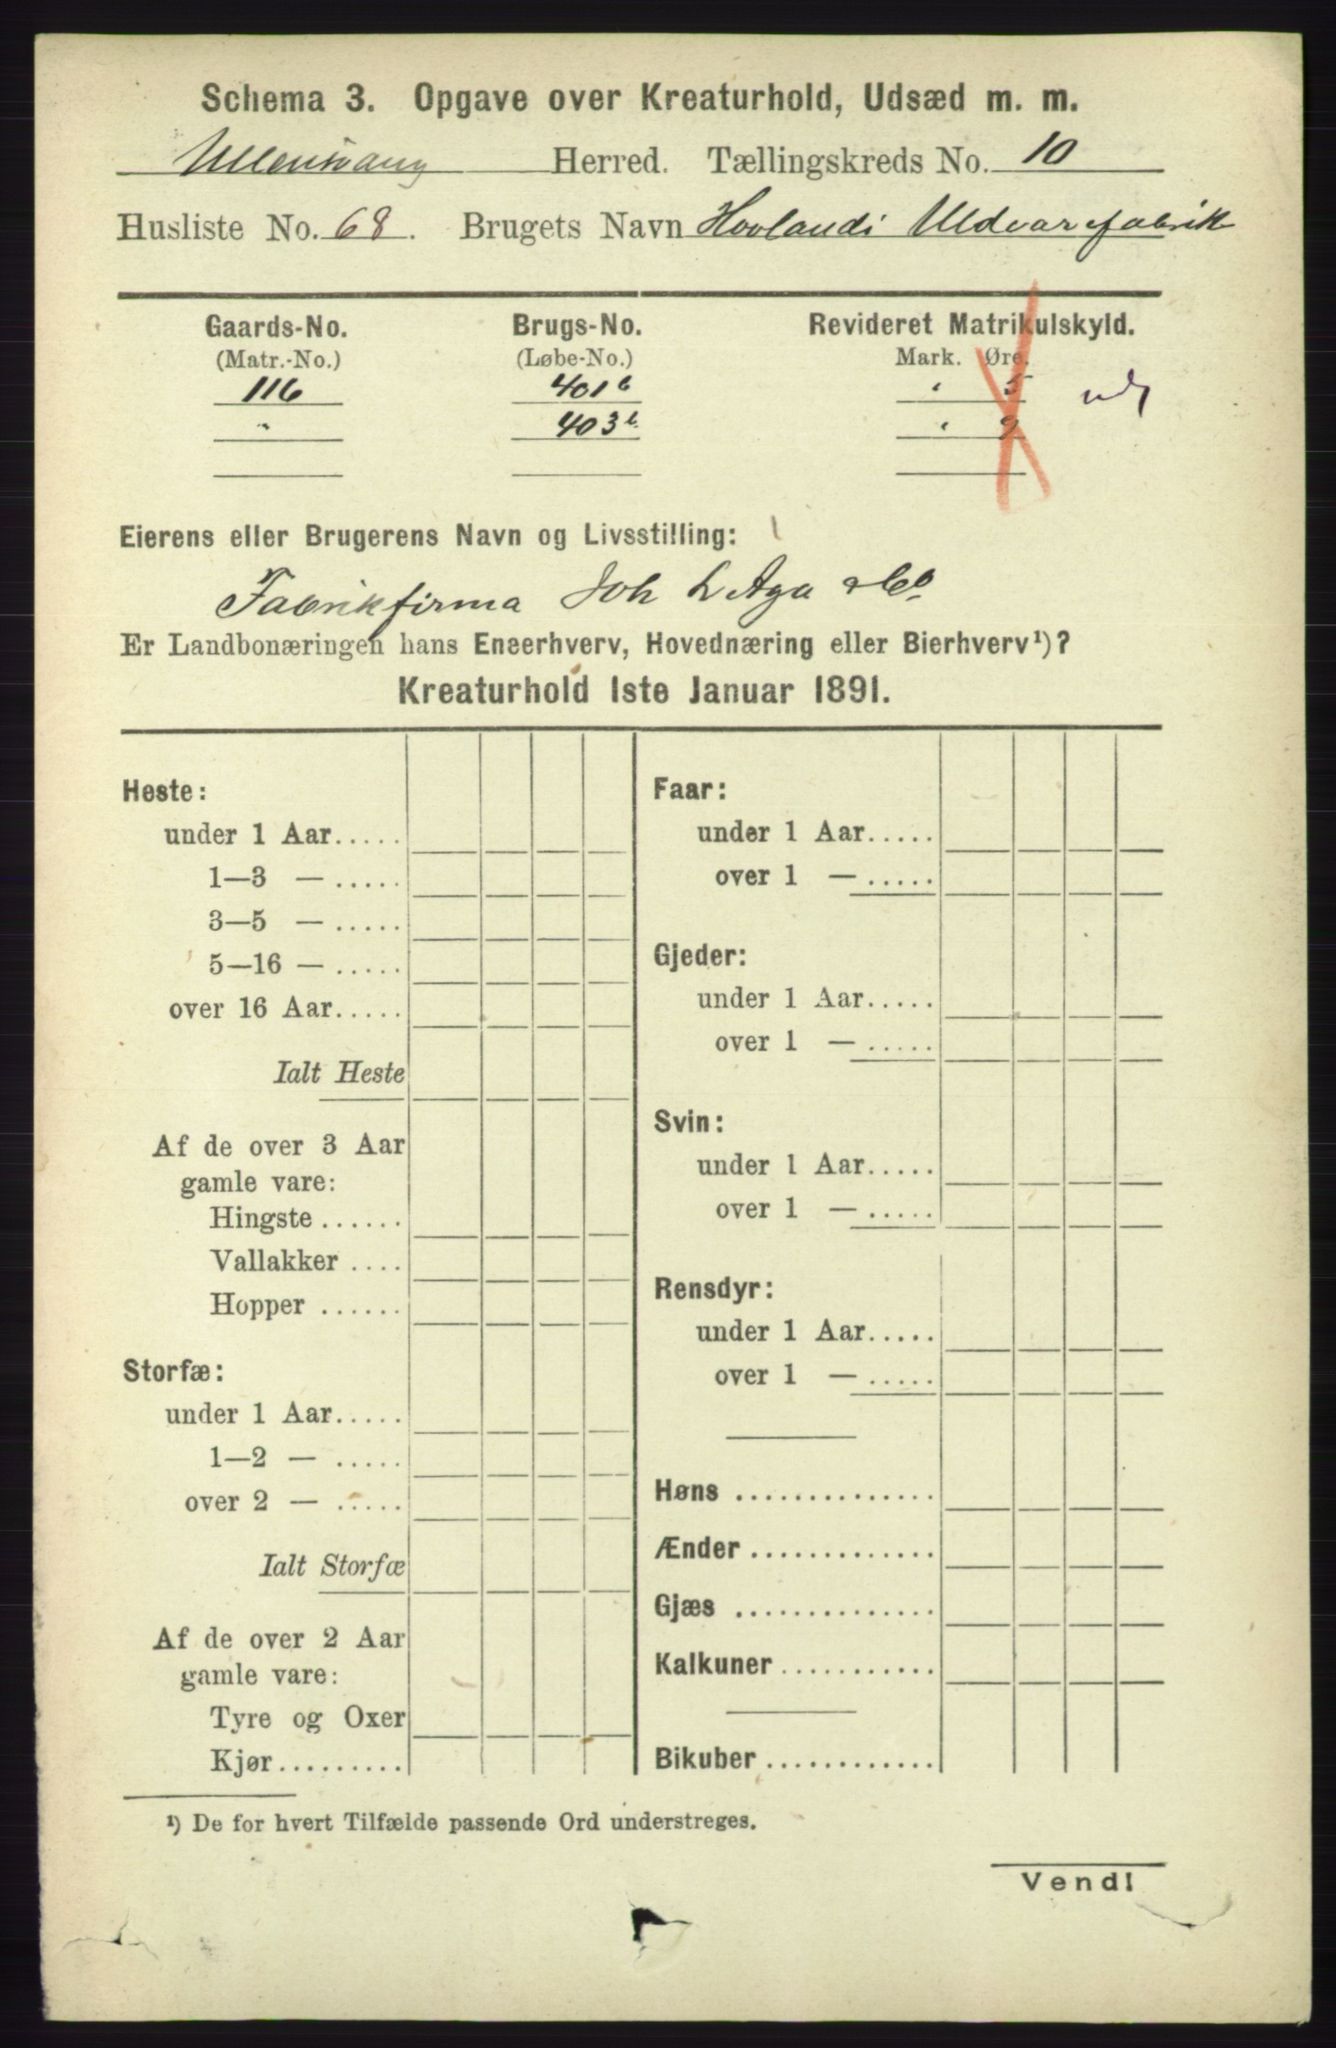 Schema 3. Opgave over Kreaturhold, Udsæd m. m.
Ullensvang Herred. Tællingskreds No. 10
Husliste No. 68. Brugets Navn Hovlands Uldvarefabrik
Gaards-No. Brugs-No. Revideret Matrikulskyld.
(Matr.-No.) (Løbe-No.) Mark. Øre.
116 401b " 5
" 403b " 9
Eierens eller Brugerens Navn og Livsstilling:
Fabrikfirma Joh L Aga & Co
Er Landbonæringen hans Eneerhverv, Hovednæring eller Bierhverv¹)?
Kreaturhold 1ste Januar 1891.
Heste:
under 1 Aar.....
1—3 — .....
3—5 — .....
5—16 — .....
over 16 Aar.....
Ialt Heste
Af de over 3 Aar
gamle vare:
Hingste ......
Vallakker ....
Hopper ......
Storfæ:
under 1 Aar.....
1—2 — .....
over 2 — .....
Ialt Storfæ
Af de over 2 Aar
gamle vare:
Tyre og Oxer
Kjør.........
Faar:
under 1 Aar.....
over 1 — .....
Gjeder:
under 1 Aar.....
over 1 — .....
Svin:
under 1 Aar.....
over 1 — .....
Rensdyr:
under 1 Aar.....
over 1 — .....
Høns ..............
Ænder .............
Gjæs ..............
Kalkuner...........
Bikuber.............
¹) De for hvert Tilfælde passende Ord understreges.
Vend!